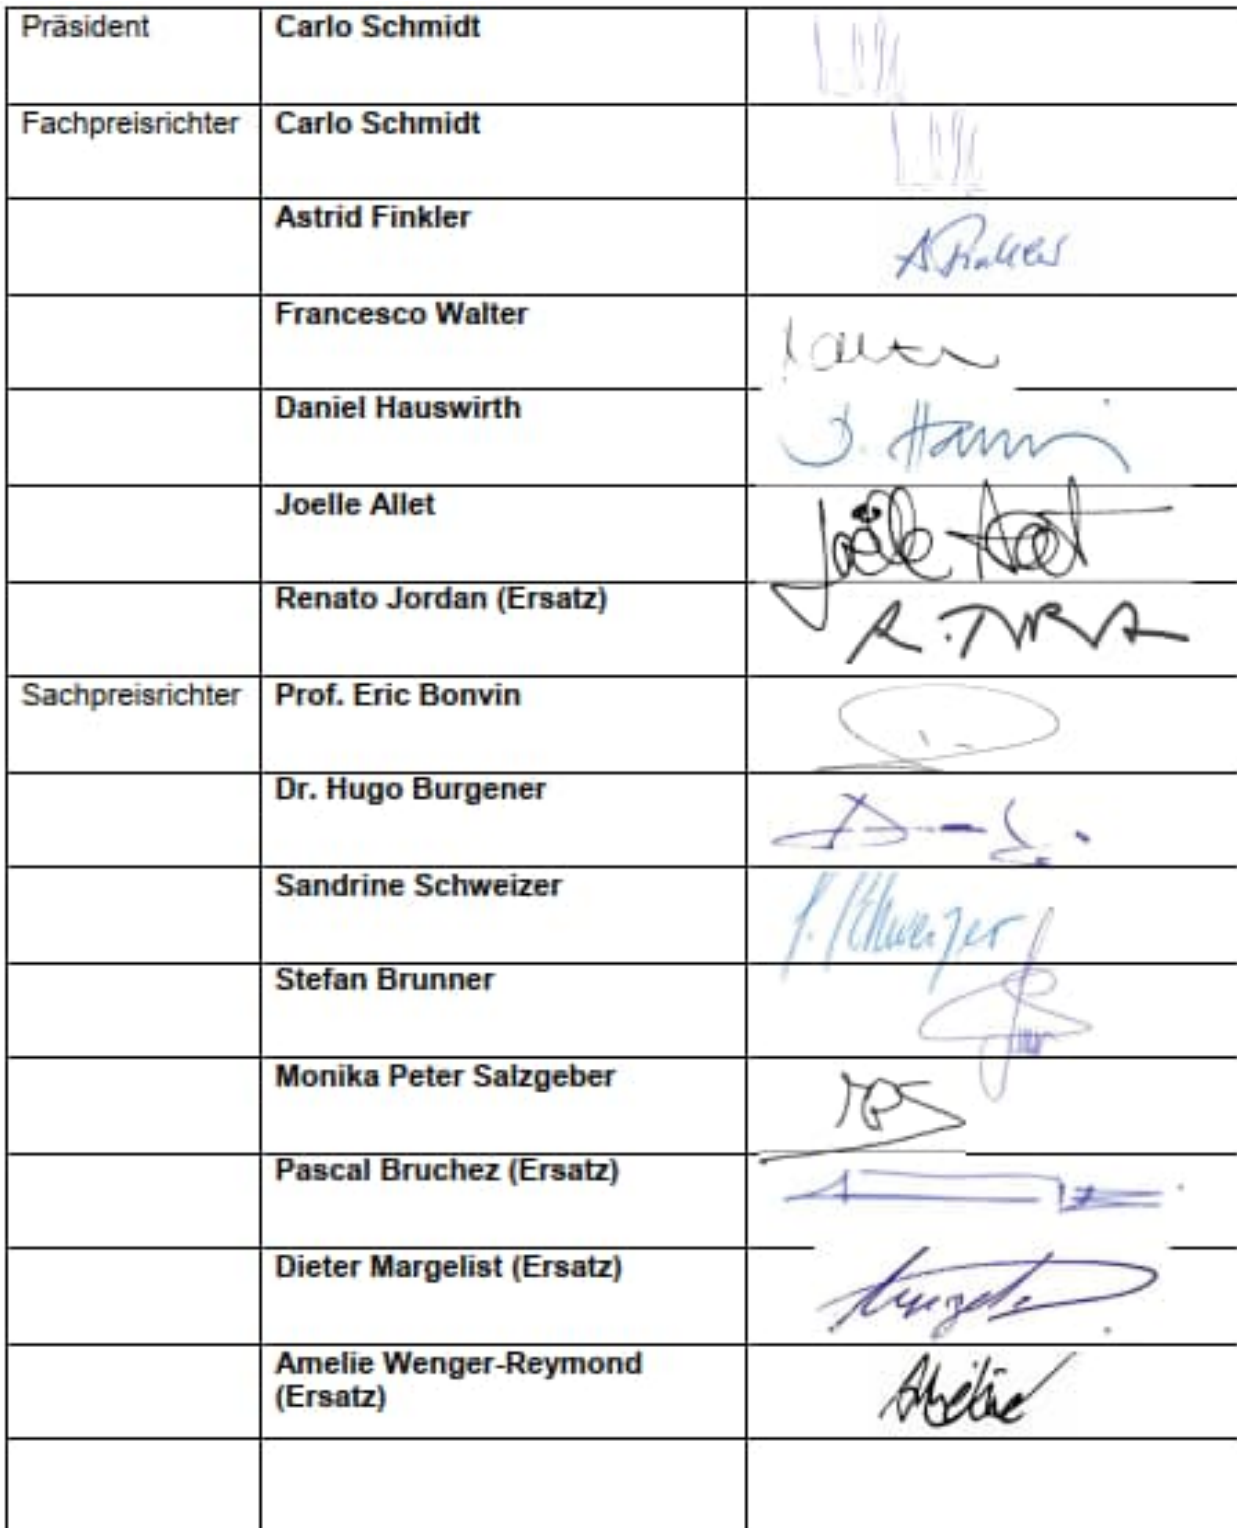 Präsident Carlo Schmidt
Fachpreisrichter Carlo Schmidt
Astrid Finkler
A Finkler
Francesco Walter
Daniel Hauswirth
Joelle Allet
Joëlle Allet
Renato Jordan (Ersatz)
Sachpreisrichter Prof. Eric Bonvin
Dr. Hugo Burgener
Sandrine Schweizer
S. Schweizer
Stefan Brunner
Monika Peter Salzgeber
MPS
Pascal Bruchez (Ersatz)
Dieter Margelist (Ersatz)
Amelie Wenger-Reymond
(Ersatz)
Amélie